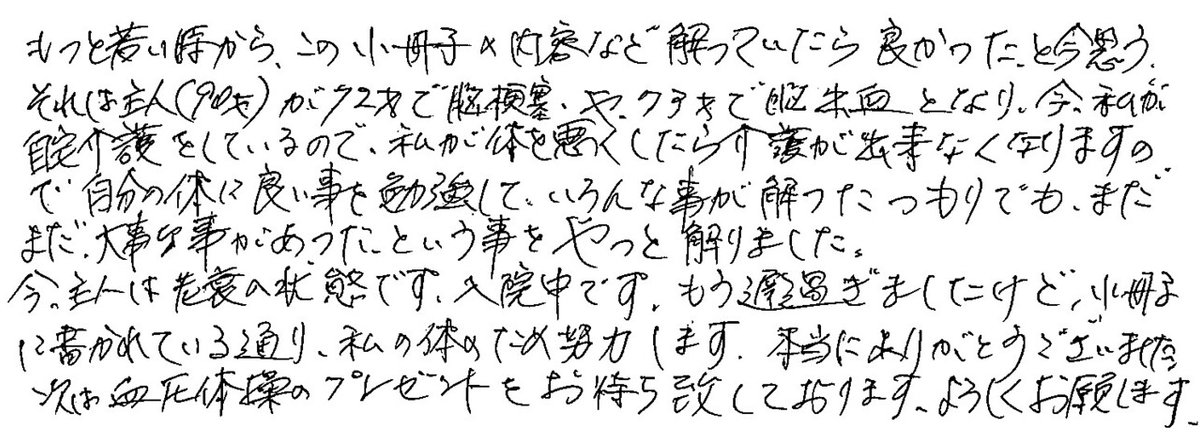 もっと若い時から、この小冊子の内容など解っていたら良かった、と今思う。
それは主人(90才)が72才で脳梗塞、や、73才で脳出血となり、今、私が
自宅介護をしているので、私が体を悪くしたら介護が出来なくなりますの
で自分の体に良い事を勉強して、いろんな事が解ったつもりでも、まだ
まだ、大事な事があった、という事をやっと解りました。
今、主人は老衰の状態です、入院中です、もう遅過ぎましたけど、小冊子
に書かれている通り、私の体のため努力します、本当にありがとうございました
次は血圧体操のプレゼントをお待ち致しております、よろしくお願します、